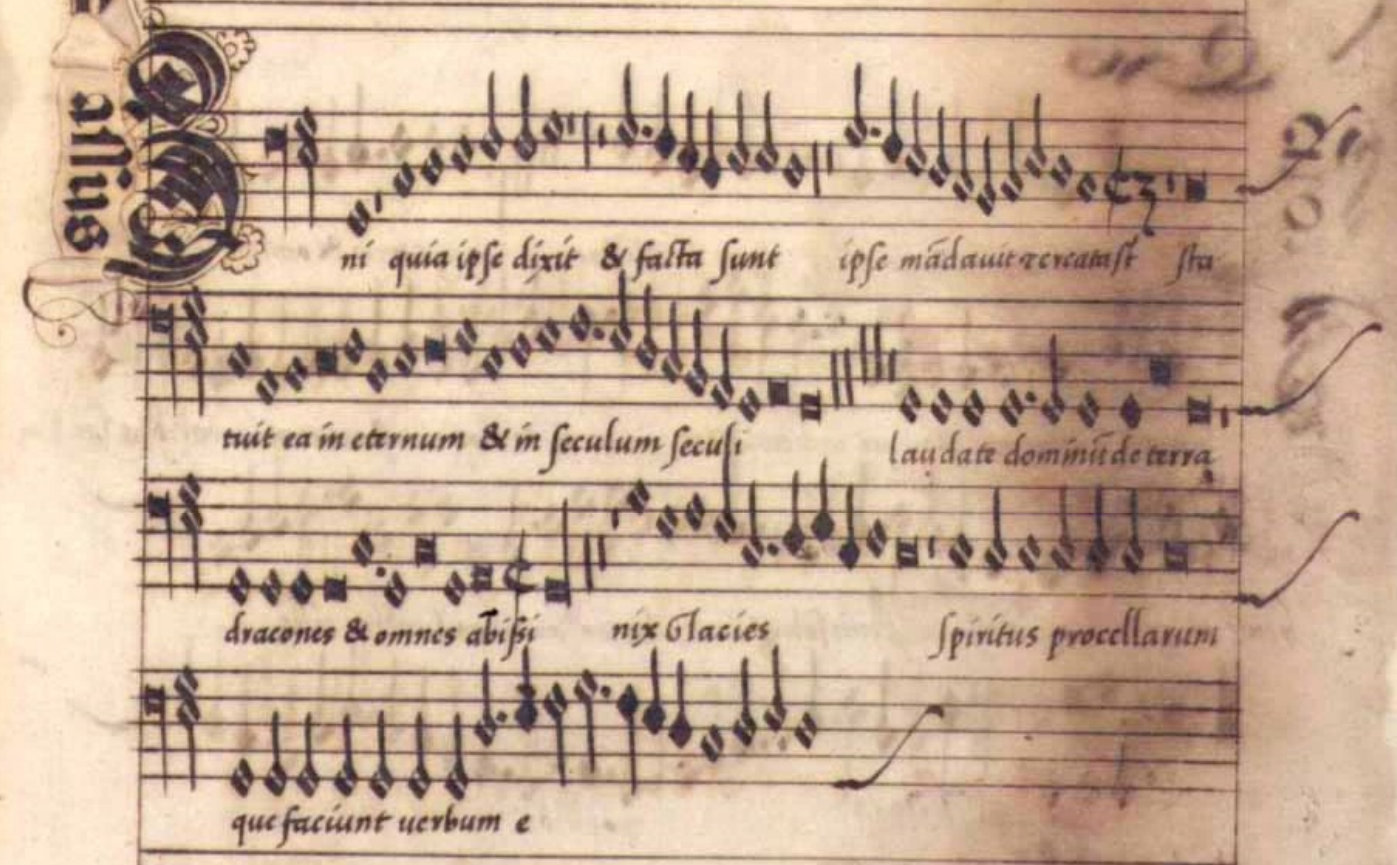 assus
ni quia ipse dixit & facta sunt ipse mādavit
tuit ea in eternum & in seculum seculi laudate dominū de terra
dracones & omnes abissi nix Glacies spiritus procellarum
que faciunt uerbum e